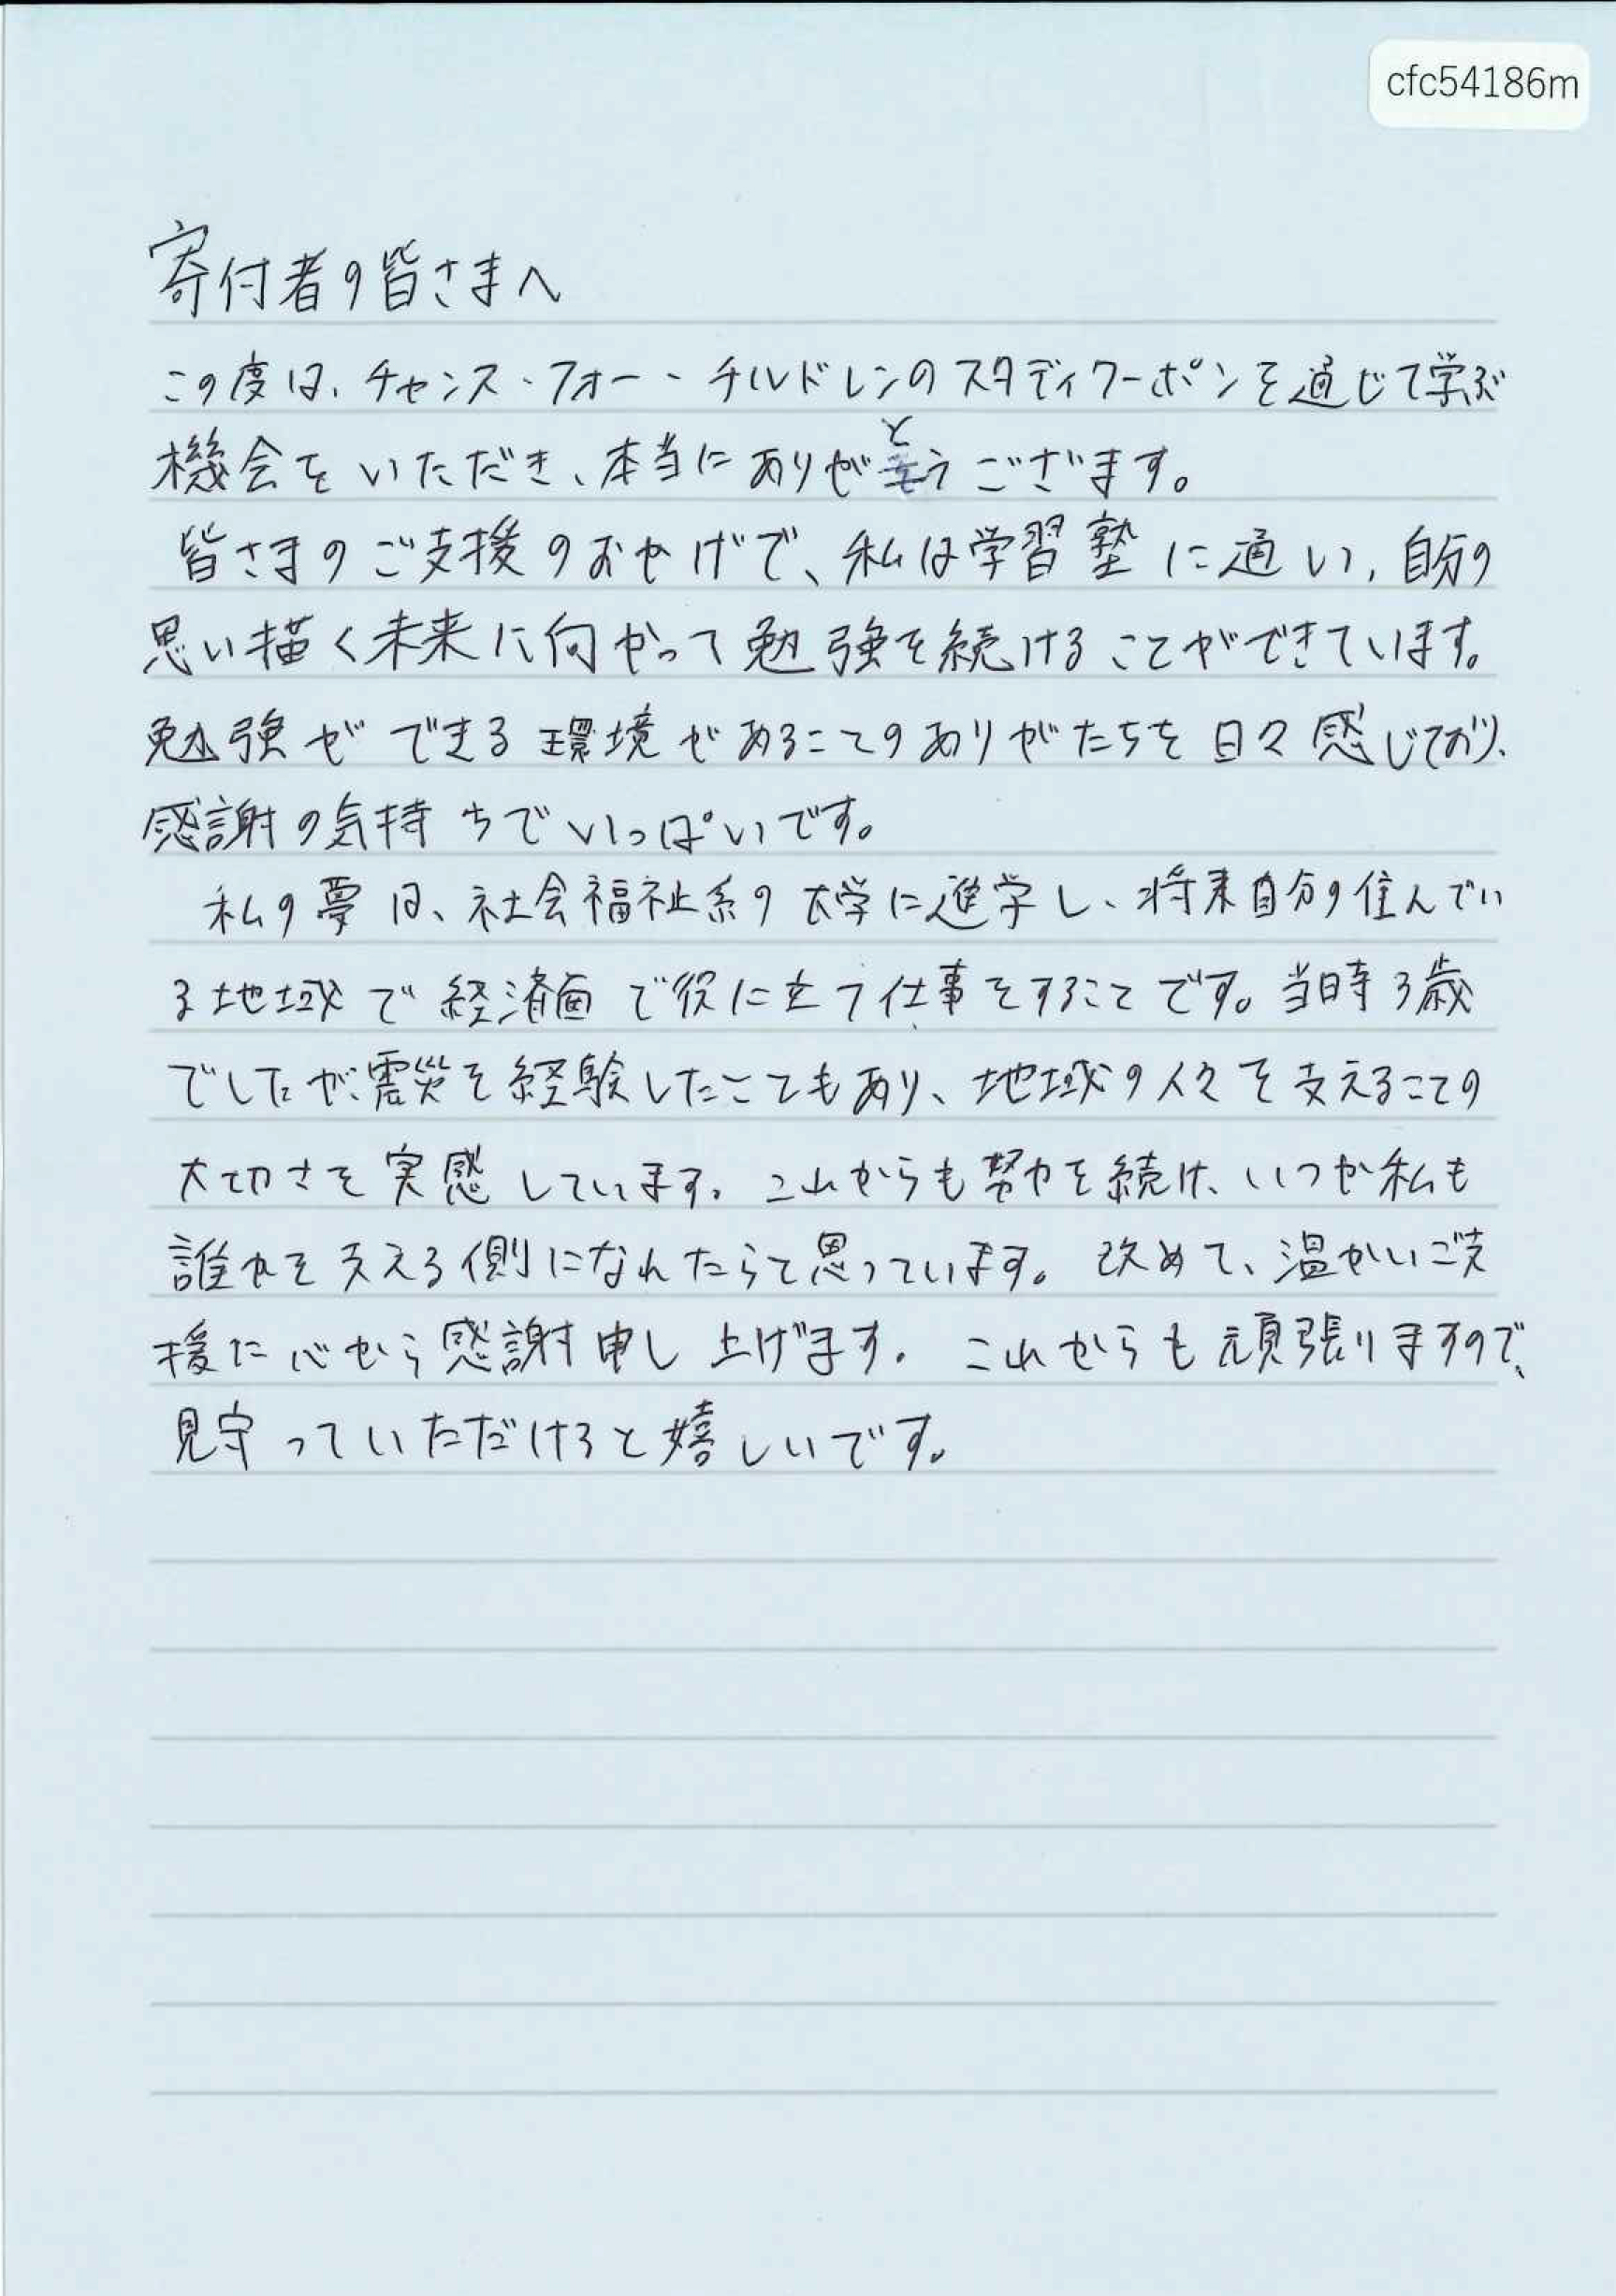 cfc54186m
寄付者の皆さまへ
この度は、チャンス・フォー・チルドレンのスタディクーポンを通じて学ぶ
機会をいただき、本当にありがとうございます。
皆さまのご支援のおかげで、私は学習塾に通い、自分の
思い描く未来に向かって勉強を続けることができています。
勉強ができる環境があることのありがたさを日々感じており、
感謝の気持ちでいっぱいです。
私の夢は、社会福祉系の大学に進学し、将来自分の住んでい
る地域で経済面で役に立つ仕事をすることです。当時3歳
でしたが、震災を経験したこともあり、地域の人々を支えることの
大切さを実感しています。これからも努力を続け、いつか私も
誰かを支える側になれたらと思っています。改めて、温かいご支
援に心から感謝申し上げます。これからも頑張りますので、
見守っていただけると嬉しいです。